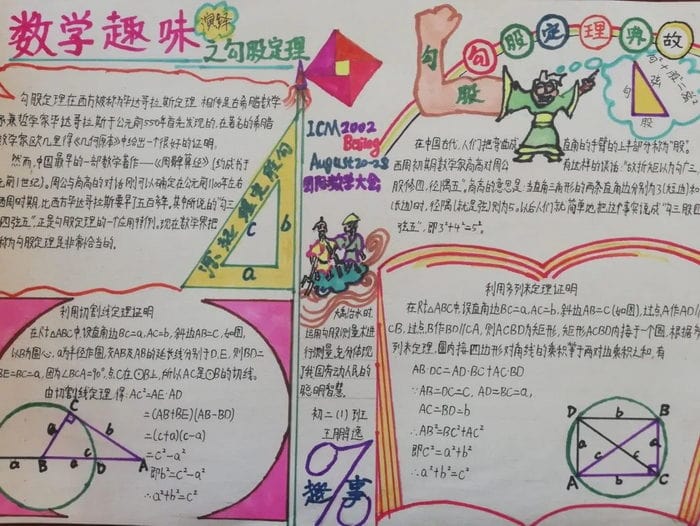 数学趣味
演绎
之勾股定理
勾股定理在西方被称为毕达哥拉斯定理,相传是古希腊数学
家兼哲学家毕达哥拉斯于公元前550年首先发现的,在著名的希腊
数学家欧几里得《几何原本》中给出一个很好的证明。
然而,中国最早的一部数学著作——《周髀算经》(约成书于
元前1世纪)。周公与商高的对话则可以确定在公元前1100年左右
西周时期,比西方毕达哥拉斯要早了五百年。其中所说的"勾三
四弦五",正是勾股定理的一个应用特例。现在数学界把
称为勾股定理是非常恰当的。
c
b
a
ICM2002
Beijing
August20-28
国际数学大会
大禹治水时,
运用勾股测量术进
行测量,充分体现
了我国劳动人民的
聪明智慧。
初二(1)班
趣
事
勾
股
勾股定理典故
勾
股
弦
在中国古代,人们把弯曲成
直角的手臂的上半部分称为"股"。
西周初期数学家商高对周公
有这样的谈话:"故折矩以为勾广三,
股修四,径隅五"。商高的意思是:当直角三角形的两条直角边分别为3(短边)和
(长边)时,径隅(就是弦)则为5。以后人们就简单地把这个事实说成"勾三股四
弦五",即3²+4²=5²。
利用切割线定理证明
在Rt△ABC中,设直角边BC=a,AC=b,斜边AB=c,如图,
以B为圆心,a为半径作圆,交AB及AB的延长线分别于D、E,则BD=
BE=BC=a,因为∠BCA=90°,点C在⊙B上,所以AC是⊙B的切线。
由切割线定理,得:AC²=AE·AD
=(AB+BE)(AB-BD)
=(c+a)(c-a)
=c²-a²
即b²=c²-a²
∴a²+b²=c²
C
a
b
a
B
a
c
D
A
利用多列米定理证明
在Rt△ABC中,设直角边BC=a,AC=b,斜边AB=C(如图),过点A作AD//
CB,过点B作BD//CA,则ACBD为矩形,矩形ACBD内接于一个圆,根据多
列米定理,圆内接四边形对角线的乘积等于两对边乘积之和,有
AB·DC=AD·BC+AC·BD
∵AB=DC=C,AD=BC=a,
AC=BD=b
∴AB²=BC²+AC²
即C²=a²+b²
∴a²+b²=c²
D
b
B
a
c
c
a
A
b
C